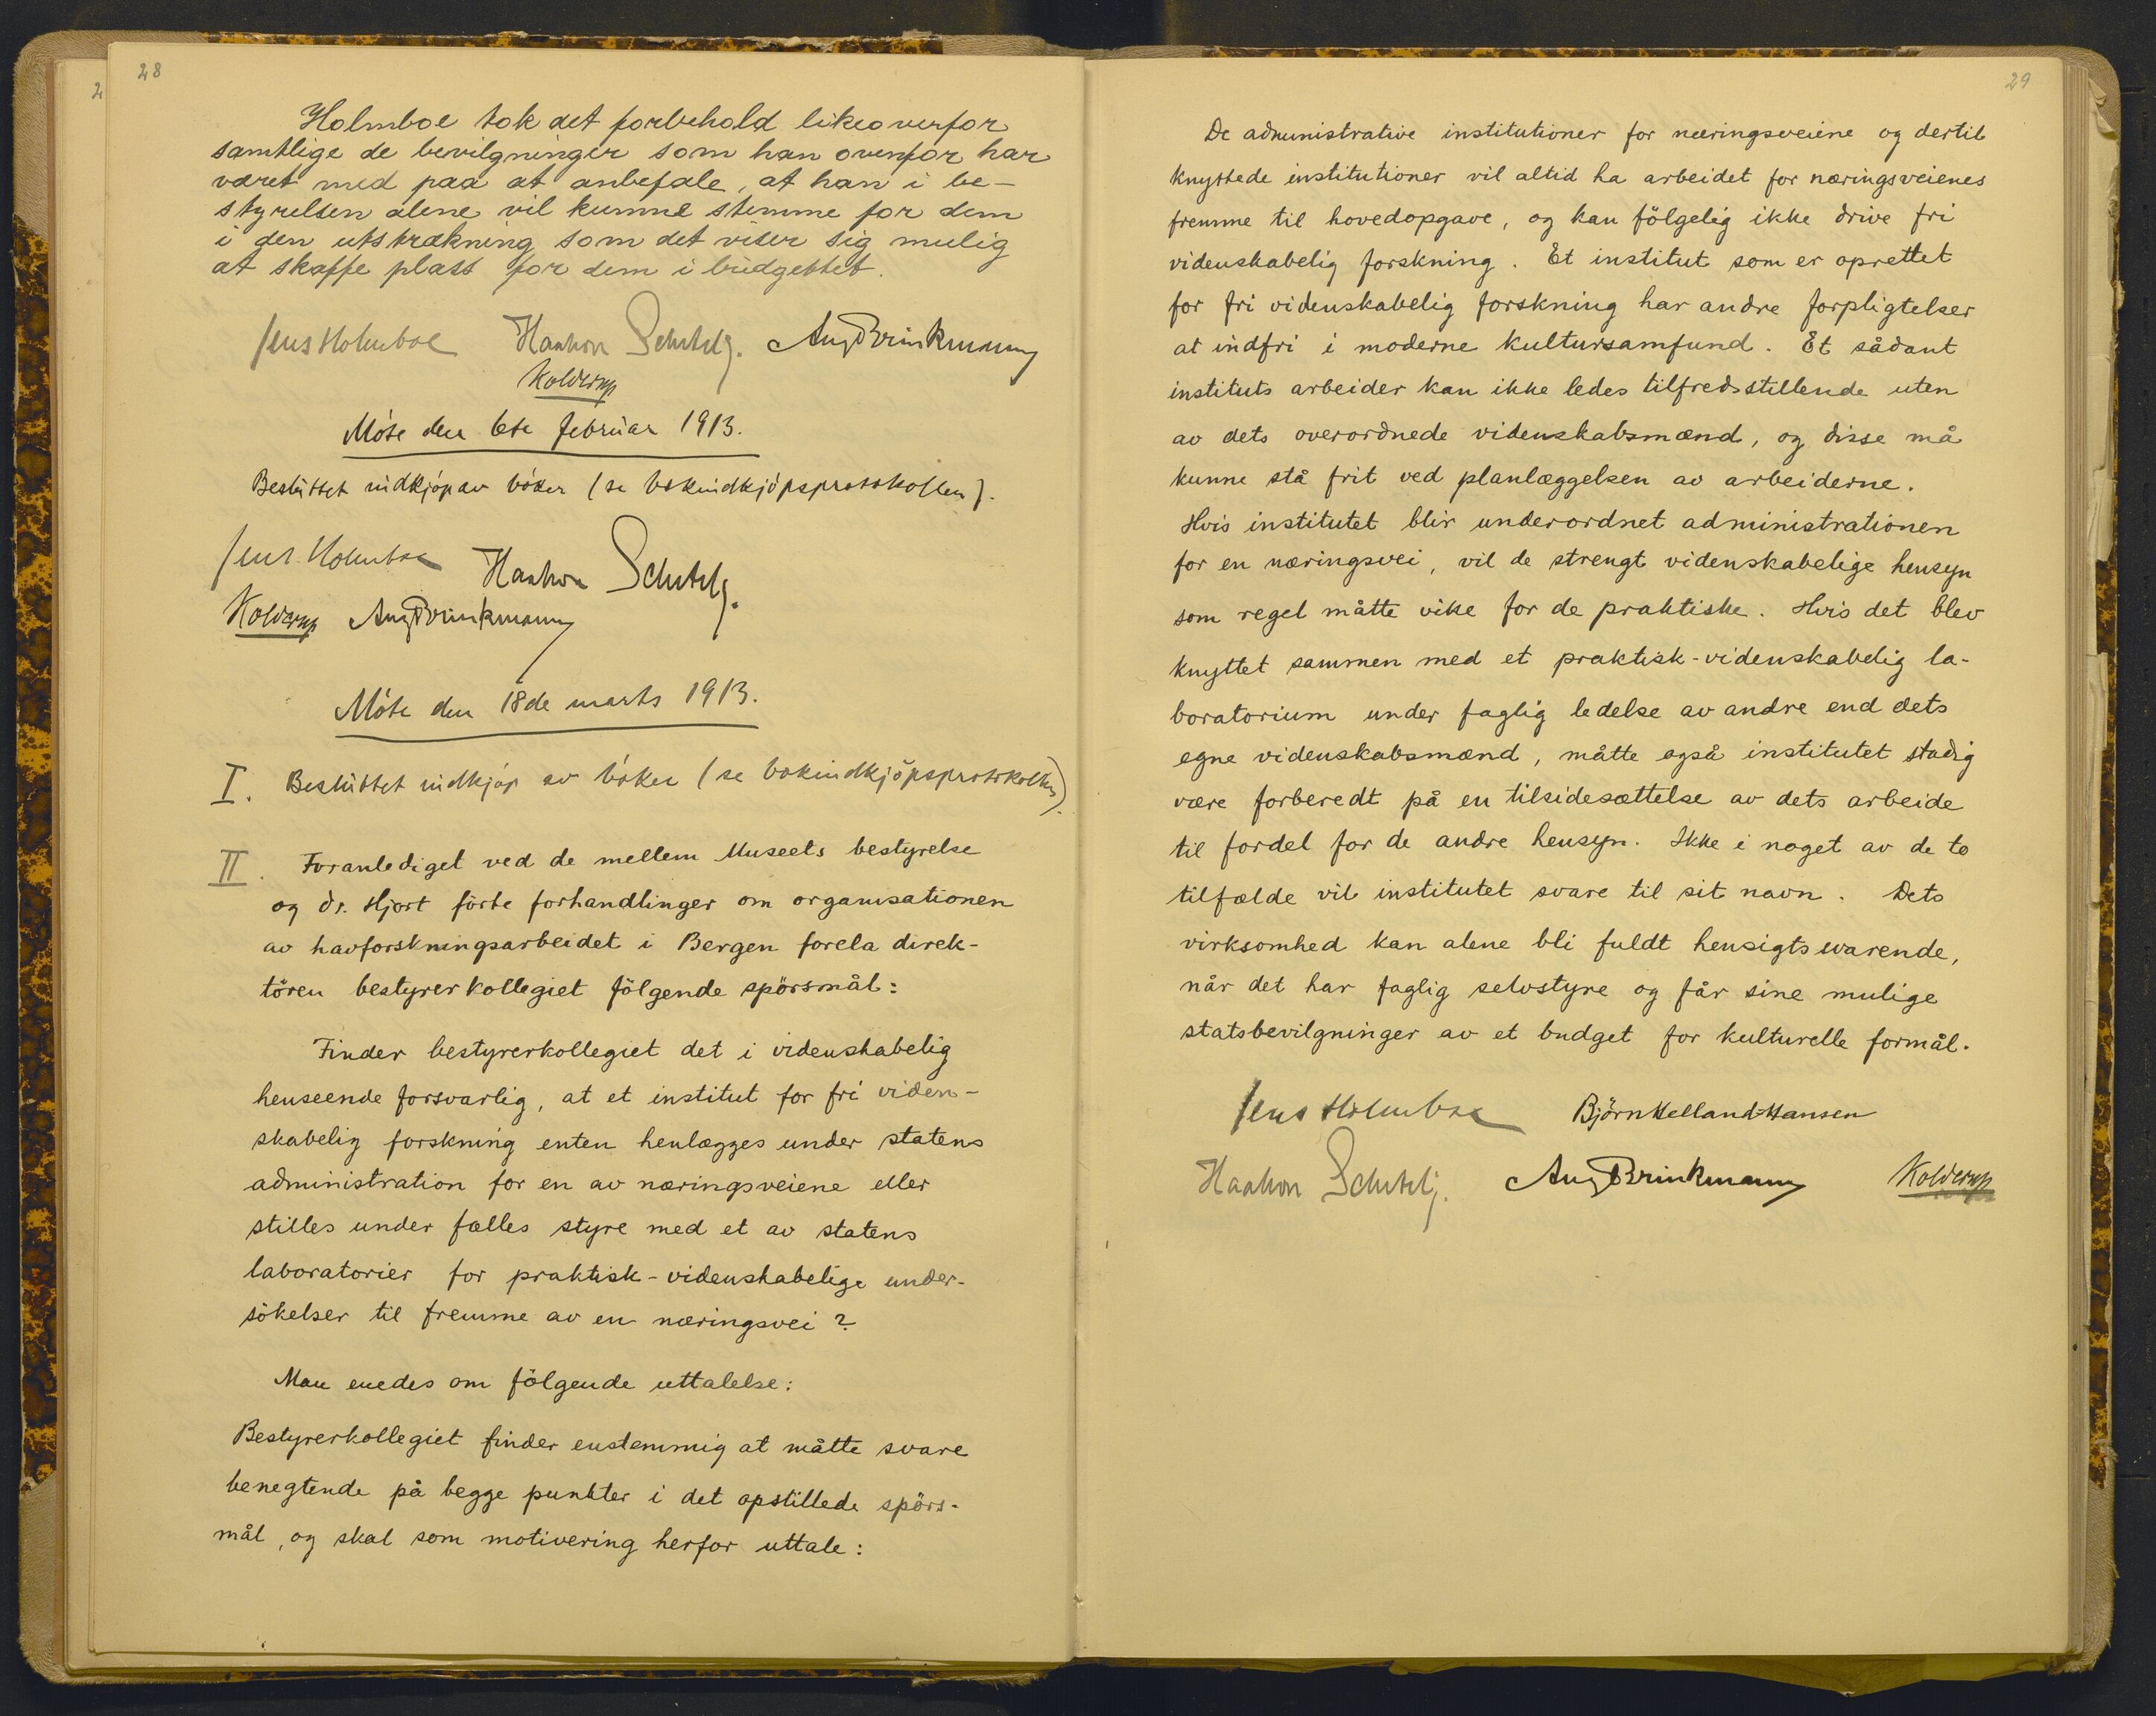 28
Holmboe tok det forbehold likeoverfor
samtlige de bevilgninger som han ovenfor har
været med paa at anbefale, at han i be-
styrelsen alene vil kunne stemme for dem
i den utstrækning som det viser sig mulig
at skaffe plass for dem i budgettet.
Jens Holmboe Haakon Schetelig. Aug Brinkmann
Kolderup
Möte den 6te februar 1913.
Besluttet indkjöp av böker (se bokindkjöpsprotokollen).
Jens Holmboe Haakon Schetelig.
Kolderup Aug Brinkmann
Möte den 18de marts 1913.
I. Besluttet indkjöp av böker (se bokindkjöpsprotokollen).
II. Foranlediget ved de mellem Museets bestyrelse
og dr. Hjort förte forhandlinger om organisationen
av havforskningsarbeidet i Bergen forela direk-
tören bestyrerkollegiet fölgende spörsmål:
Finder bestyrerkollegiet det i videnskabelig
henseende forsvarlig, at et institut for fri viden-
skabelig forskning enten henlægges under statens
administration for en av næringsveiene eller
stilles under fælles styre med et av statens
laboratorier for praktisk-videnskabelige under-
sökelser til fremme av en næringsvei?
Man enedes om fölgende uttalelse:
Bestyrerkollegiet finder enstemmig at måtte svare
benegtende på begge punkter i det opstillede spörs-
mål, og skal som motivering herfor uttale:
29
De administrative institutioner for næringsveiene og dertil
knyttede institutioner vil altid ha arbeidet for næringsveienes
fremme til hovedopgave, og kan fölgelig ikke drive fri
videnskabelig forskning. Et institut som er oprettet
for fri videnskabelig forskning har andre forpligtelser
at indfri i moderne kultursamfund. Et sådant
instituts arbeider kan ikke ledes tilfredsstillende uten
av dets overordnede videnskabsmænd, og disse må
kunne stå frit ved planlæggelsen av arbeiderne.
Hvis institutet blir underordnet administrationen
for en næringsvei, vil de strengt videnskabelige hensyn
som regel måtte vike for de praktiske. Hvis det blev
knyttet sammen med et praktisk-videnskabelig la-
boratorium under faglig ledelse av andre end dets
egne videnskabsmænd, måtte også institutet stadig
være forberedt på en tilsidesættelse av dets arbeide
til fordel for de andre hensyn. Ikke i noget av de to
tilfælde vil institutet svare til sit navn. Dets
virksomhed kan alene bli fuldt hensigtssvarende,
når det har faglig selvstyre og får sine mulige
statsbevilgninger av et budget for kulturelle formål.
Jens Holmboe Björn Helland-Hansen
Haakon Schetelig. Aug Brinkmann Kolderup